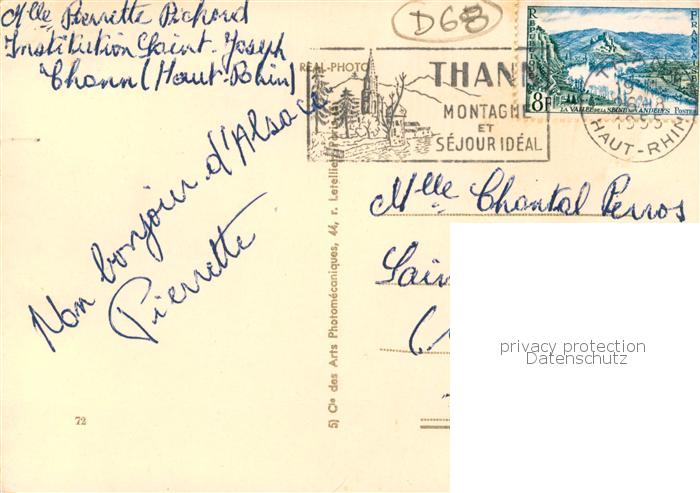 Mlle Pierrette Pichond
Institution Saint-Joseph
Thann (Haut-Rhin)
D68
REAL-PHOTO
THANN
MONTAGNE
ET
SÉJOUR IDÉAL
8F
LA VALLÉE DE LA SEINE AUX ANDELYS POSTES
HAUT-RHIN
Mon bonjour d'Alsace
Pierrette
5) Cie des Arts Photomécaniques, 44, r. Letellier,
Mlle Chantal Perros
72
privacy protection
Datenschutz